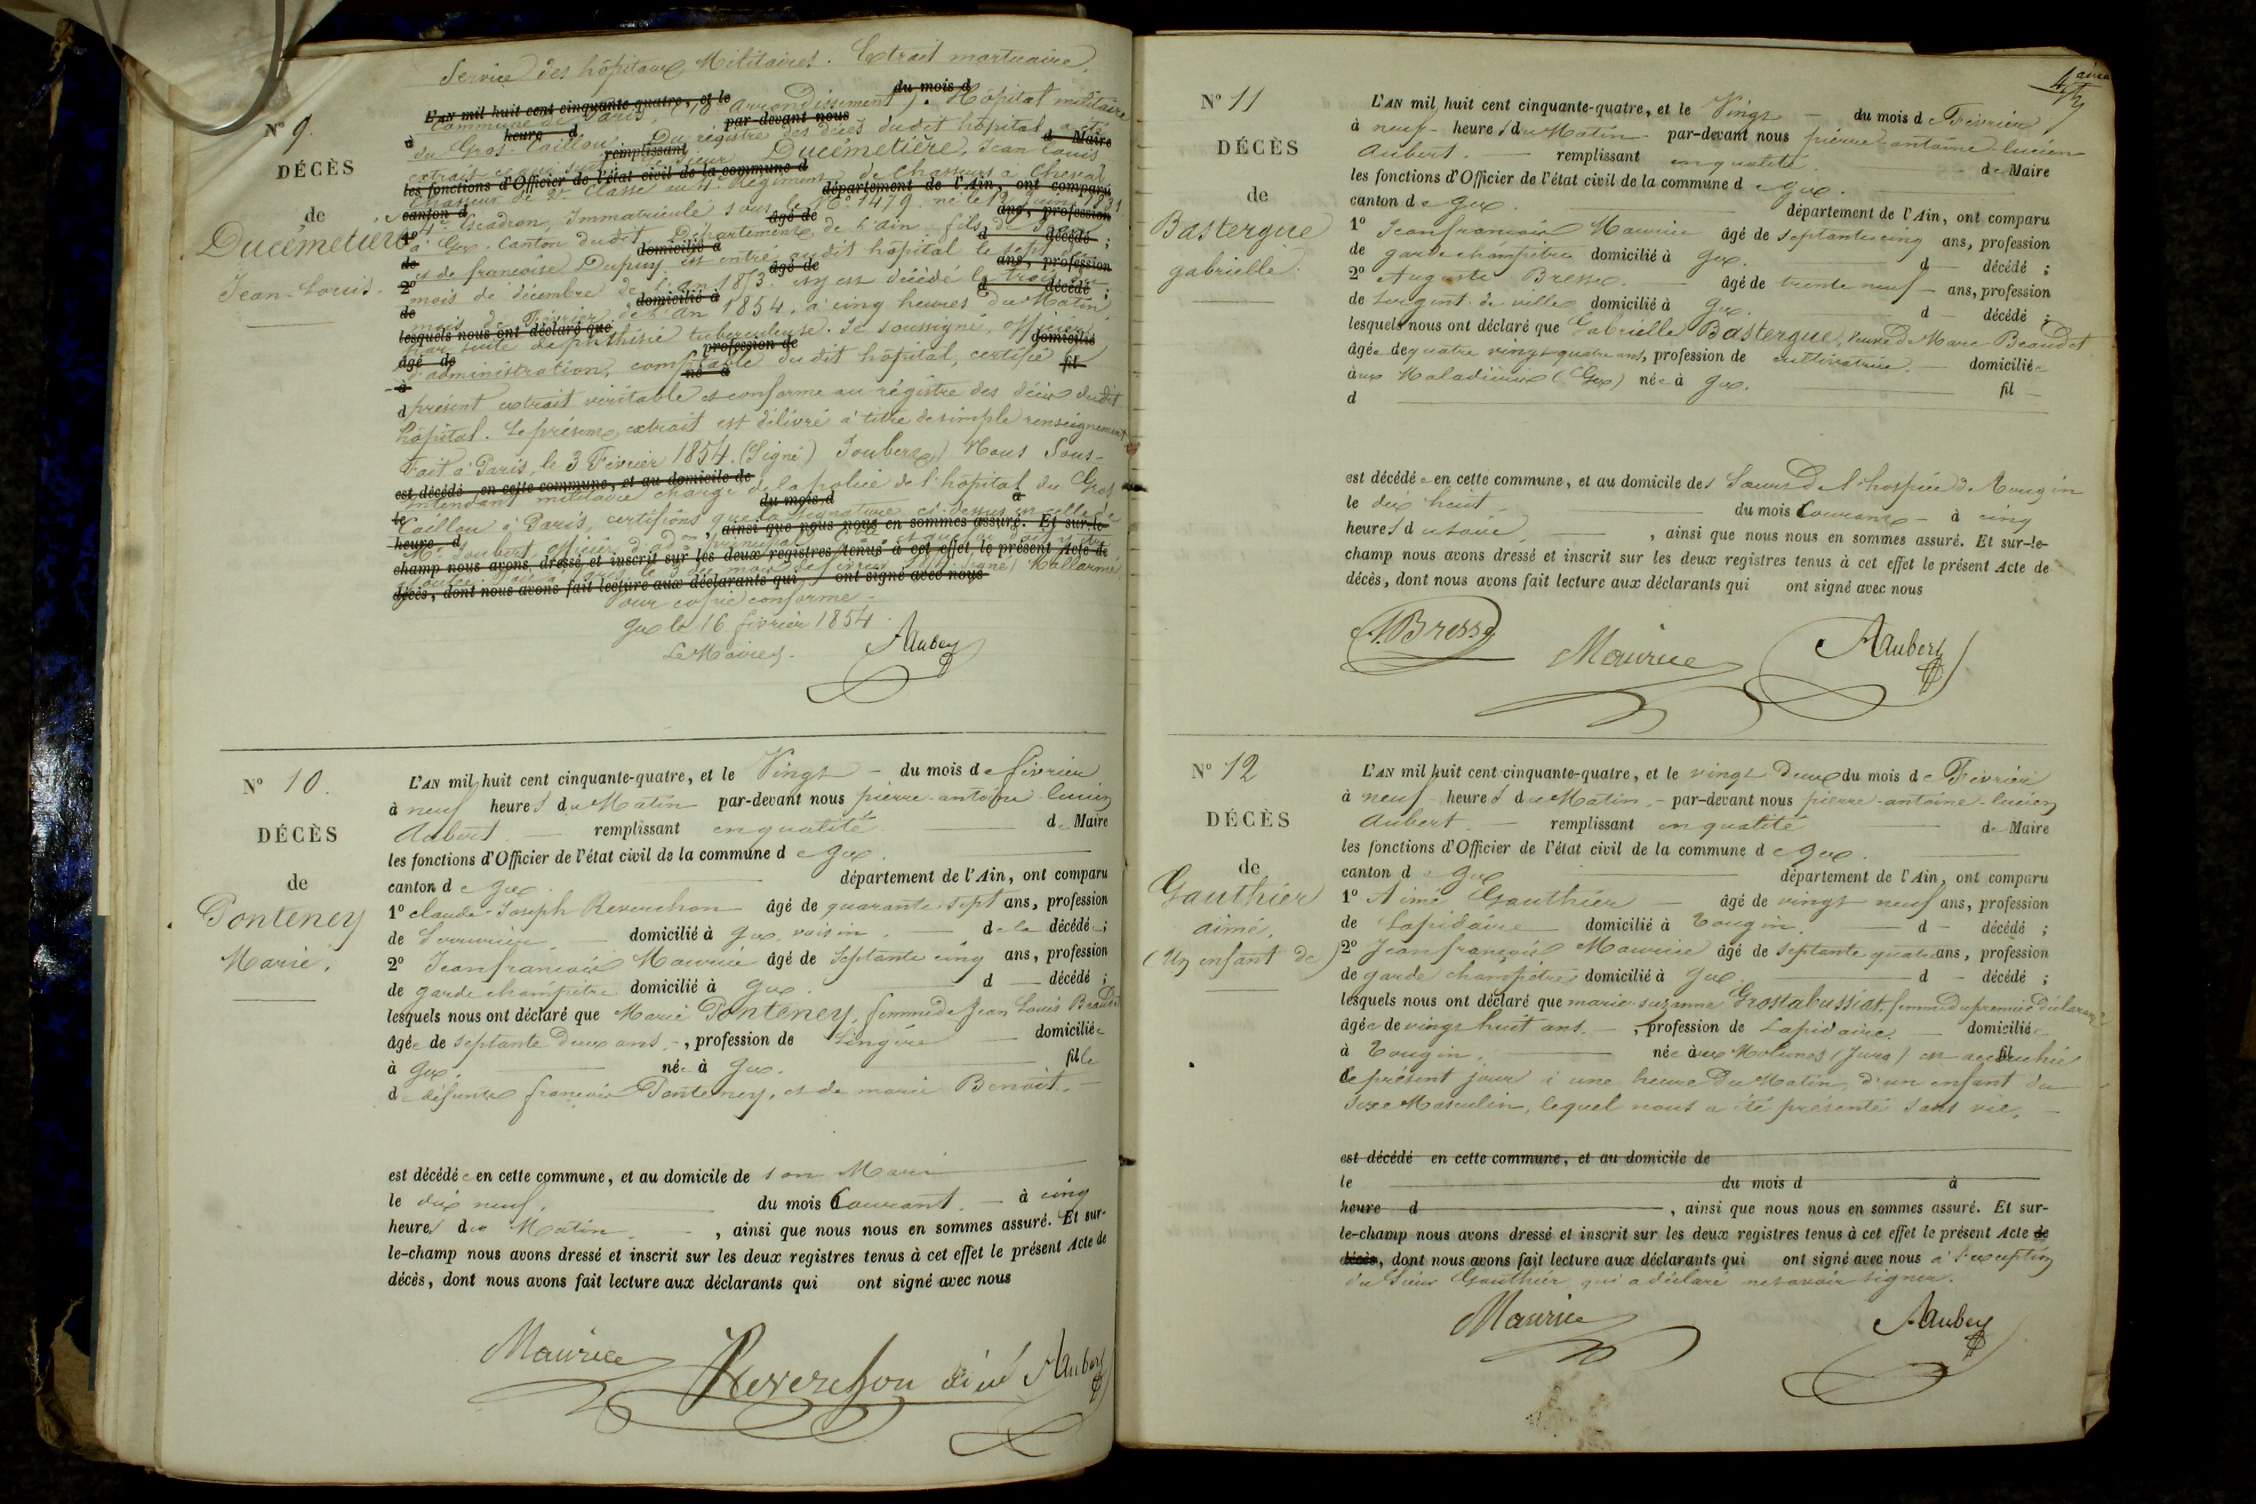 Service des hôpitaux Militaires. Extrait mortuaire.
Nº 9.
DÉCÈS
de
Ducimetière
Jean-Louis.
L'AN mil huit cent cinquante-quatre, et le du mois d
Commune de Paris, (10e Arrondissement). Hôpital militaire
à heure d par-devant nous
du Gros-Caillou. Du registre des décès dudit hôpital a été
remplissant d Maire
extrait ce qui suit: Sieur Ducimetière, Jean Louis
les fonctions d'Officier de l'état civil de la commune d
Chasseur de 2e Classe au 4e Régiment de Chasseurs à Cheval
canton d département de l'Ain, ont comparu
4e Escadron, Immatriculé sous le Nº 1479, né le 12 juin 1831
1º âgé de ans, profession
à Gex, Canton dudit Département de l'Ain, fils de
de domicilié à d décédé ;
et de françoise Dupuy est entré audit hôpital le sept du
2º âgé de ans, profession
mois de décembre de l'an 1853. et y est décédé le trois du
de domicilié à d décédé ;
mois de Février de l'An 1854, à cinq heures du Matin
lesquels nous ont déclaré que
par suite de phthisie tuberculeuse. Je soussigné, officier
âgé de profession de domicilié
d'administration, comptable dudit hôpital, certifie le
à né à fil
d présent extrait véritable et conforme au régistre des décès dudit
hôpital. Le présent extrait est délivré à titre de simple renseignement
Fait à Paris, le 3 Février 1854. (Signé) Joubert / Nous Sous-
est décédé en cette commune, et au domicile de
intendant militaire chargé de la police de l'hôpital du Gros
le du mois d à
Caillou à Paris, certifions que la signature ci-dessus est celle de
heure d , ainsi que nous nous en sommes assuré. Et sur-le-
Mr. Joubert, officier d'adon principal
champ nous avons dressé et inscrit sur les deux registres tenus à cet effet, le présent Acte de
décès, dont nous avons fait lecture aux déclarants qui ont signé avec nous
Pour copie conforme.
Gex le 16 février 1854.
Le Maire. AAubert
Nº 10.
DÉCÈS
de
Ponteney
Marie.
L'AN mil huit cent cinquante-quatre, et le Vingt du mois de février
à neuf heures du Matin par-devant nous pierre-antoine lucien
Aubert remplissant en qualité de Maire
les fonctions d'Officier de l'état civil de la commune de Gex.
canton de Gex. département de l'Ain, ont comparu
1º claude-Joseph Reverchon âgé de quarante sept ans, profession
de Serrurier. domicilié à Gex, voisin de la décédée ;
2º Jean françois Maurice âgé de Septante cinq ans, profession
de garde champêtre domicilié à Gex. d décédé ;
lesquels nous ont déclaré que Marie Ponteney, femme de Jean Louis Beaudet
âgée de septante deux ans, profession de Lingère domiciliée
à Gex. née à Gex. fille
de défunts françois Ponteney, et de marie Benoit.
est décédée en cette commune, et au domicile de son Mari
le dix neuf. du mois Courant. à cinq
heures du Matin. , ainsi que nous nous en sommes assuré. Et sur-
le-champ nous avons dressé et inscrit sur les deux registres tenus à cet effet le présent Acte de
décès, dont nous avons fait lecture aux déclarants qui ont signé avec nous
Maurice Reverchon AAubert
Nº 11
DÉCÈS
de
Bastergue
gabrielle.
L'AN mil huit cent cinquante-quatre, et le Vingt du mois de Février
à neuf heures du Matin par-devant nous pierre-antoine-lucien
Aubert. remplissant en qualité de Maire
les fonctions d'Officier de l'état civil de la commune de Gex.
canton de Gex. département de l'Ain, ont comparu
1º Jean françois Maurice âgé de septante cinq ans, profession
de garde champêtre domicilié à Gex. d décédé ;
2º Auguste Bresse. âgé de trente neuf ans, profession
de Sergent de ville domicilié à Gex. d décédé ;
lesquels nous ont déclaré que Gabrielle Bastergue, Veuve de Marc Beaudet
âgée de quatre vingt quatre ans, profession de cultivatrice. domiciliée
aux Maladières (Gex) née à Gex. fil
d
est décédée en cette commune, et au domicile des Soeurs de l'hospice de Tougin
le dix huit du mois Courant à cinq
heures du soir. , ainsi que nous nous en sommes assuré. Et sur-le-
champ nous avons dressé et inscrit sur les deux registres tenus à cet effet le présent Acte de
décès, dont nous avons fait lecture aux déclarants qui ont signé avec nous
A.Bresse Maurice AAubert
Nº 12
DÉCÈS
de
Gauthier
aimé.
(Un enfant de)
L'AN mil huit cent cinquante-quatre, et le vingt deux du mois de Février
à neuf heures du Matin. par-devant nous pierre-antoine-lucien
Aubert. remplissant en qualité de Maire
les fonctions d'Officier de l'état civil de la commune de Gex.
canton de Gex département de l'Ain, ont comparu
1º Aimé Gauthier âgé de vingt neuf ans, profession
de Lapidaire domicilié à Tougin. d décédé ;
2º Jean françois Maurice âgé de septante quatre ans, profession
de garde champêtre domicilié à Gex. d décédé ;
lesquels nous ont déclaré que marie-suzanne Grostabussiat, femme du premier déclarant
âgée de vingt huit ans. , profession de Lapidaire. domiciliée
à Tougin. née aux Molunes (Jura) est accouchée
le présent jour à une heure du Matin, d'un enfant du
sexe Masculin, lequel nous a été présenté sans vie.
est décédé en cette commune, et au domicile de
le du mois d à
heure d , ainsi que nous nous en sommes assuré. Et sur-
le-champ nous avons dressé et inscrit sur les deux registres tenus à cet effet le présent Acte de
décès, dont nous avons fait lecture aux déclarants qui ont signé avec nous à l'exception
du Sieur Gauthier, qui a déclaré ne savoir signer.
Maurice AAubert